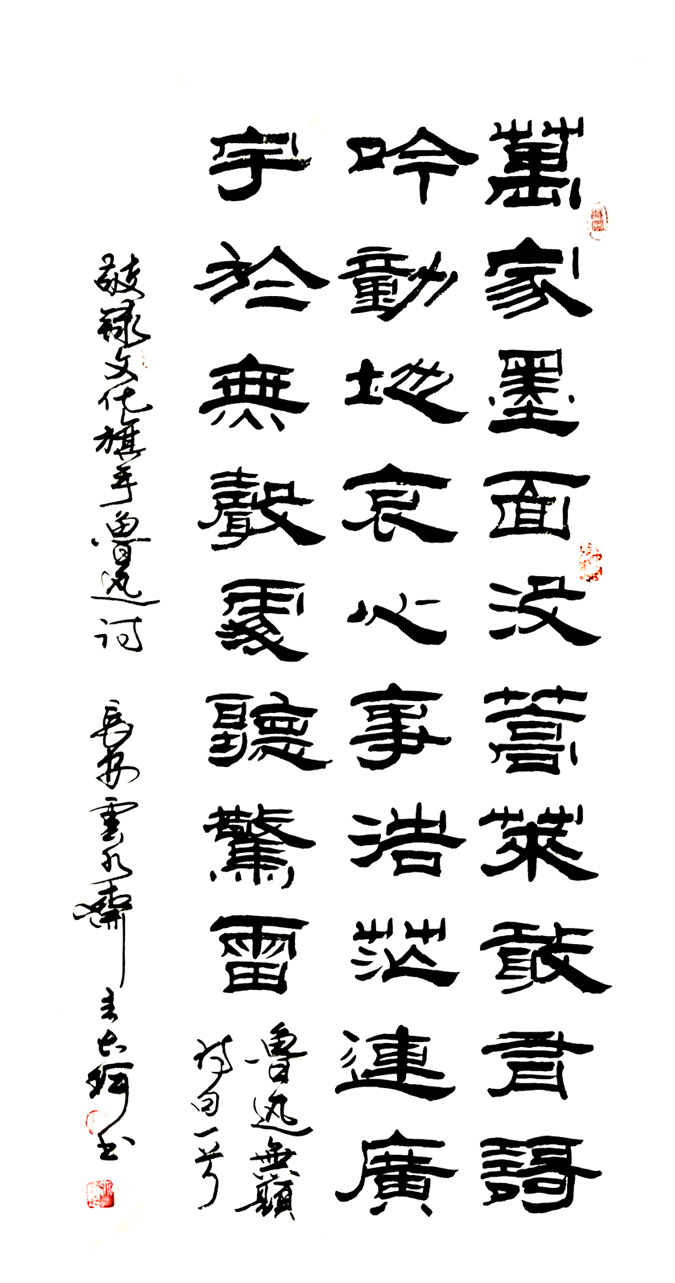 萬家墨面没蒿萊敢有謌
吟動地哀心事浩茫連廣
宇於無聲處聽驚雷
魯迅無題
詩句一首
敬録文化旗手魯迅詩 長安雲水齋主 書